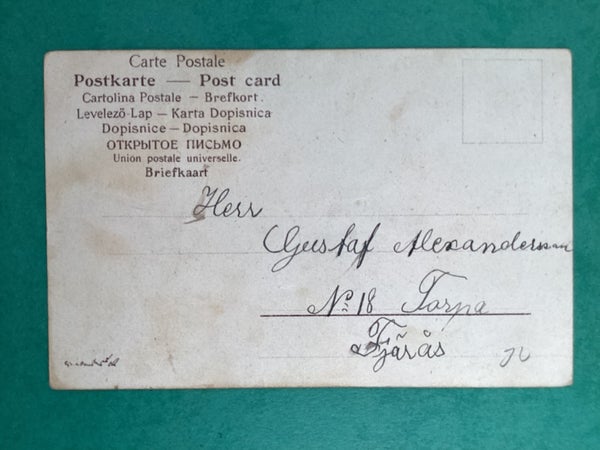 Carte Postale
Postkarte — Post card
Cartolina Postale – Brefkort.
Levelező-Lap – Karta Dopisnica
Dopisnice – Dopisnica
ОТКРЫТОЕ ПИСЬМО
Union postale universelle.
Briefkaart
Herr
Gustaf Alexandersson
No 18 Torpa
Fjärås